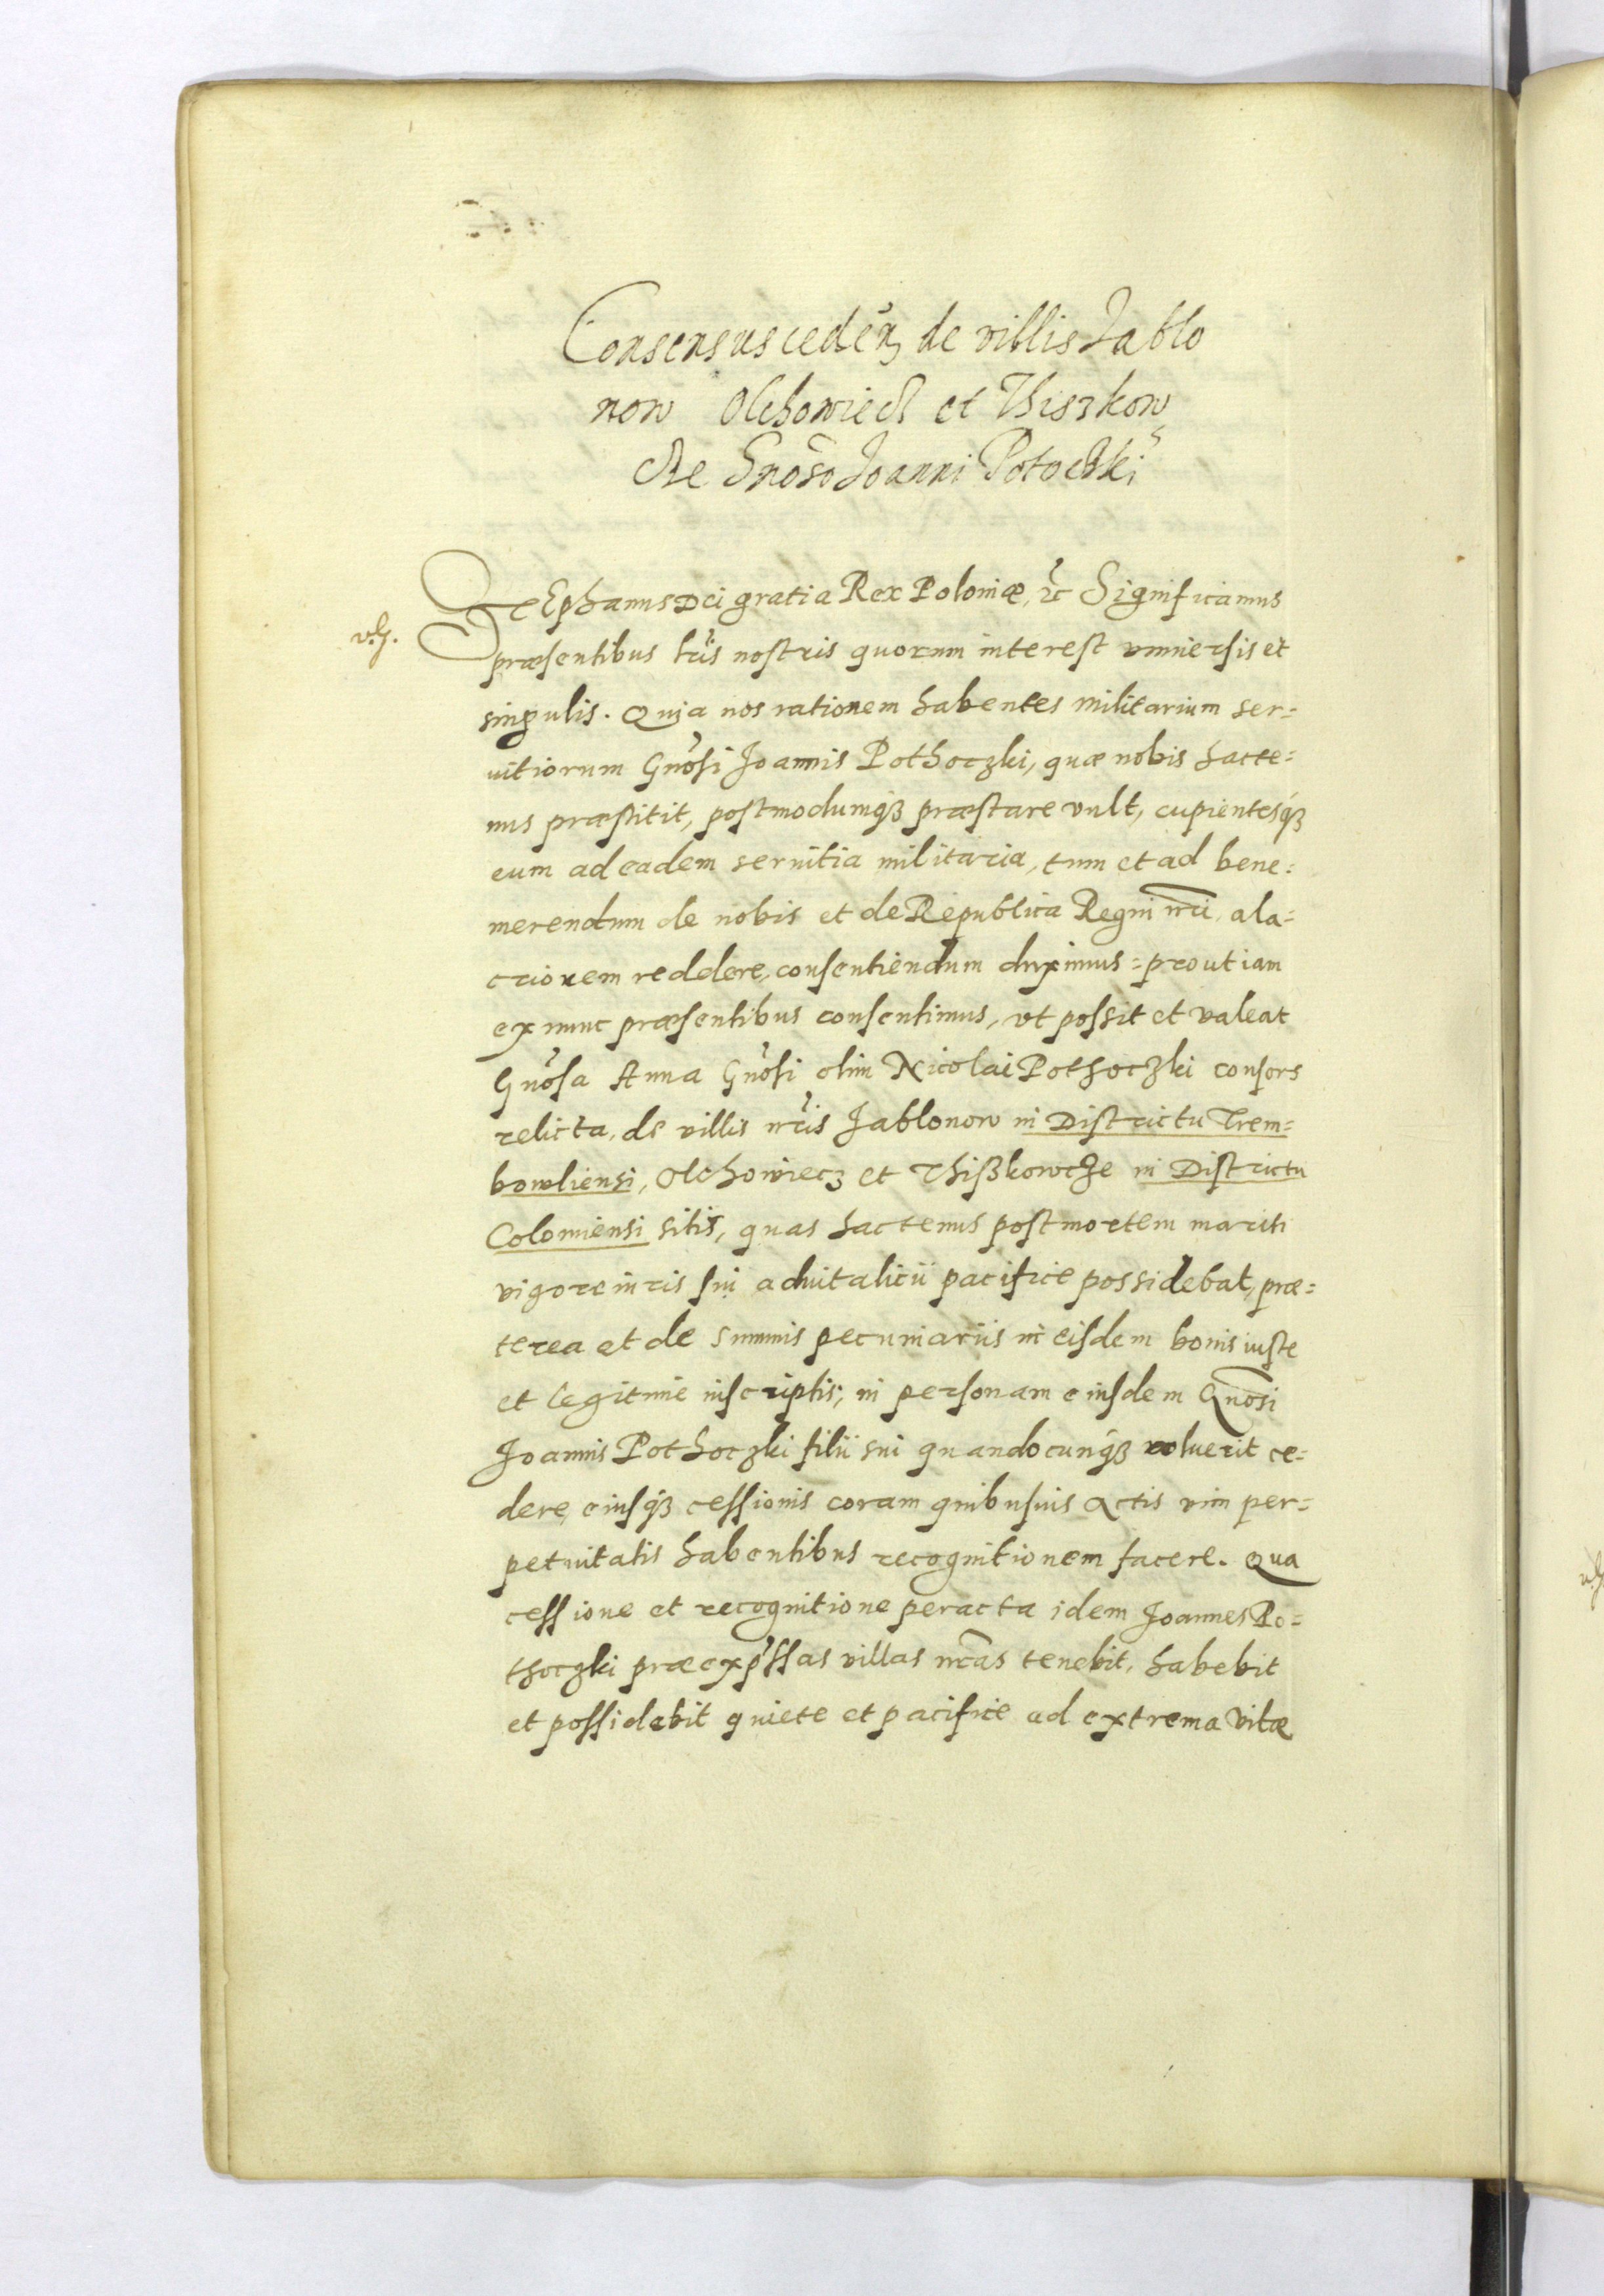 Consensus cedẽn de villis Jablo
now Olchowiecz et Thiszkow
cze Gnõso Joanni Potoczki
Stephanus Dei gratia Rex Poloniæ, ꝛc Significamus
præsentibus lr̃is nostris quorum interest vniuersis et
singulis. Quia nos rationem habentes militarium ser=
uitiorum Gnõsi Joannis Pothoczki, quæ nobis hacte=
nus præstitit, postmodumqꝫ præstare vult, cupientesqꝫ
eum ad eadem seruitia militaria, tum et ad bene=
merendum de nobis et de Republica Regni nr̃i, ala=
criorem reddere, consentiendum duximus = prout iam
ex nunc præsentibus consentimus, vt possit et valeat
Gnõsa Anna Gnõsi olim Nicolai Pothoczki consors
relicta, de villis nr̃is Jablonow in Districtu Trem=
bowliensi, Olchowiecz et Thißkowcze in Districtu
Colomiensi sitis, quas hactenus post mortem mariti
vigore iuris sui aduitalicii pacifice possidebat, præ=
terea et de summis pecuniariis in eisdem bonis iuste
et legitime inscriptis; in personam eiusdem Gnõsi
Joannis Pothoczki filii sui quandocunqꝫ voluerit ce=
dere, eiusqꝫ cessionis coram quibusuis Actis vim per=
petuitatis habentibus recognitionem facere. Qua
cessione et recognitione peracta idem Joannes Po=
thoczki præexp̃ssas villas nr̃as tenebit, habebit
et possidebit quiete et pacifice ad extrema vitæ